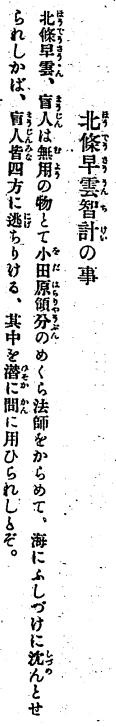 北條早雲智計の事
北條早雲、盲人は無用の物とて小田原領分のめくら法師をからめて、海にふしづけに沈んとせ
られしかば、盲人皆四方に逃ちりける、其中を潜に間に用ひられしとぞ。